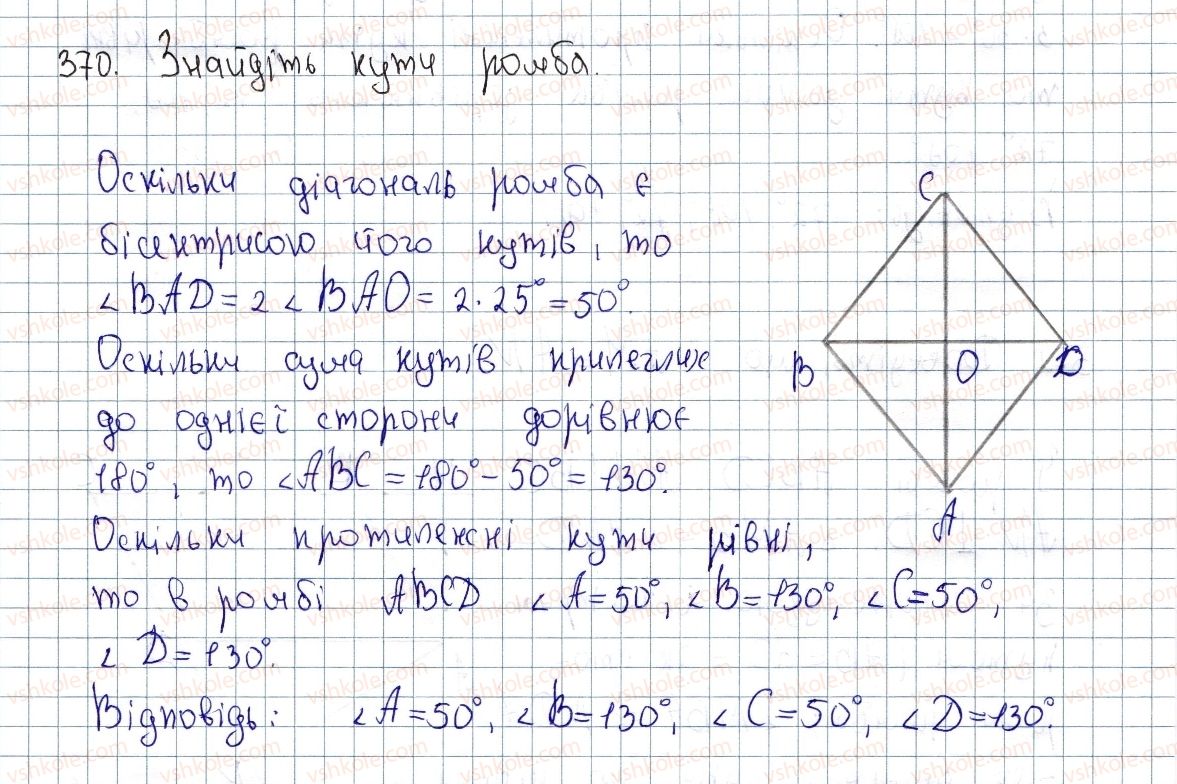 370. Знайдіть кути ромба.
Оскільки діагональ ромба є
бісектрисою його кутів, то
∠BAD = 2 ∠BAO = 2·25° = 50°.
Оскільки сума кутів прилеглих
до однієї сторони дорівнює
180°, то ∠ABC = 180° - 50° = 130°.
Оскільки протилежні кути рівні,
то в ромбі ABCD ∠A = 50°, ∠B = 130°, ∠C = 50°,
∠D = 130°.
Відповідь: ∠A = 50°, ∠B = 130°, ∠C = 50°, ∠D = 130°.
C
B
O
D
A